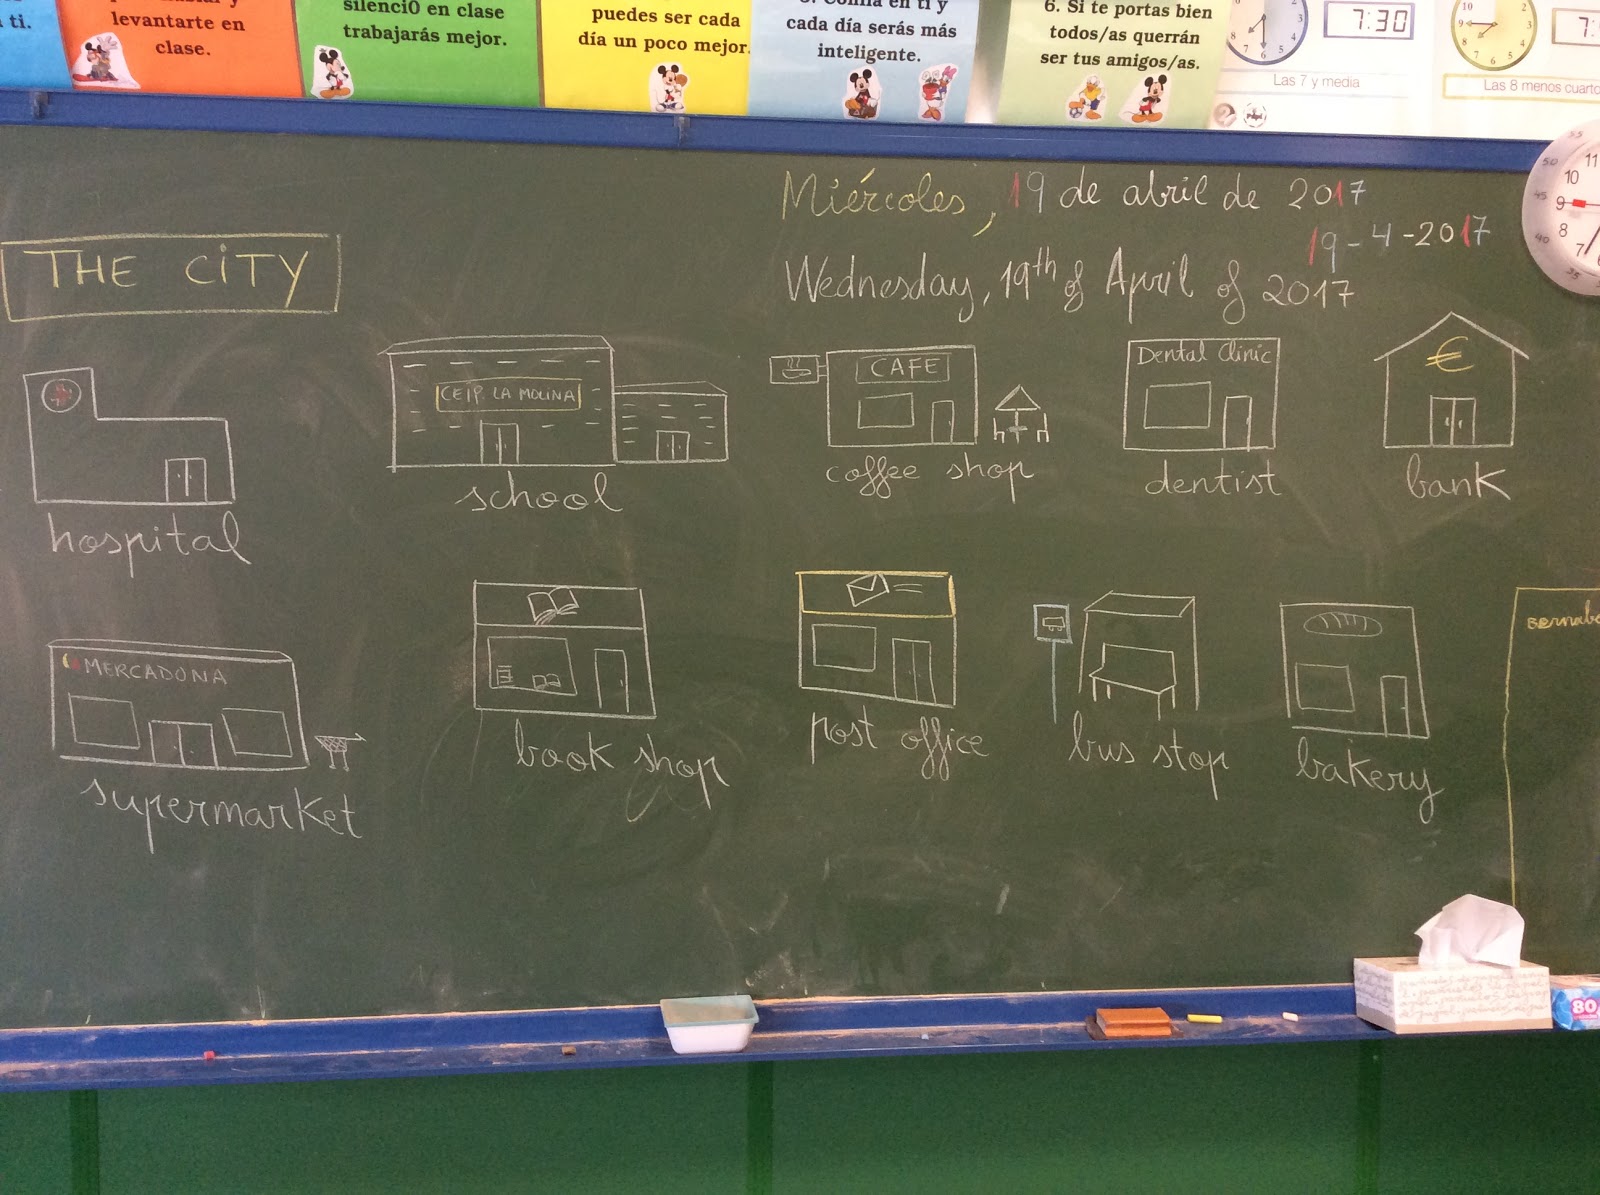 ti.
levantarte en
clase.
silenci0 en clase
trabajarás mejor.
puedes ser cada
día un poco mejor.
en ti y
cada día serás más
inteligente.
6. Si te portas bien
todos/as querrán
ser tus amigos/as.
7:30
Las 7 y media
Las 8 menos cuarto
Miércoles, 19 de abril de 2017
19-4-2017
Wednesday, 19th of April of 2017
THE CiTY
CEIP. LA MOLINA
CAFE
Dental Clinic
€
hospital
school
coffee shop
dentist
bank
MERCADONA
supermarket
book shop
post office
bus stop
bakery
80